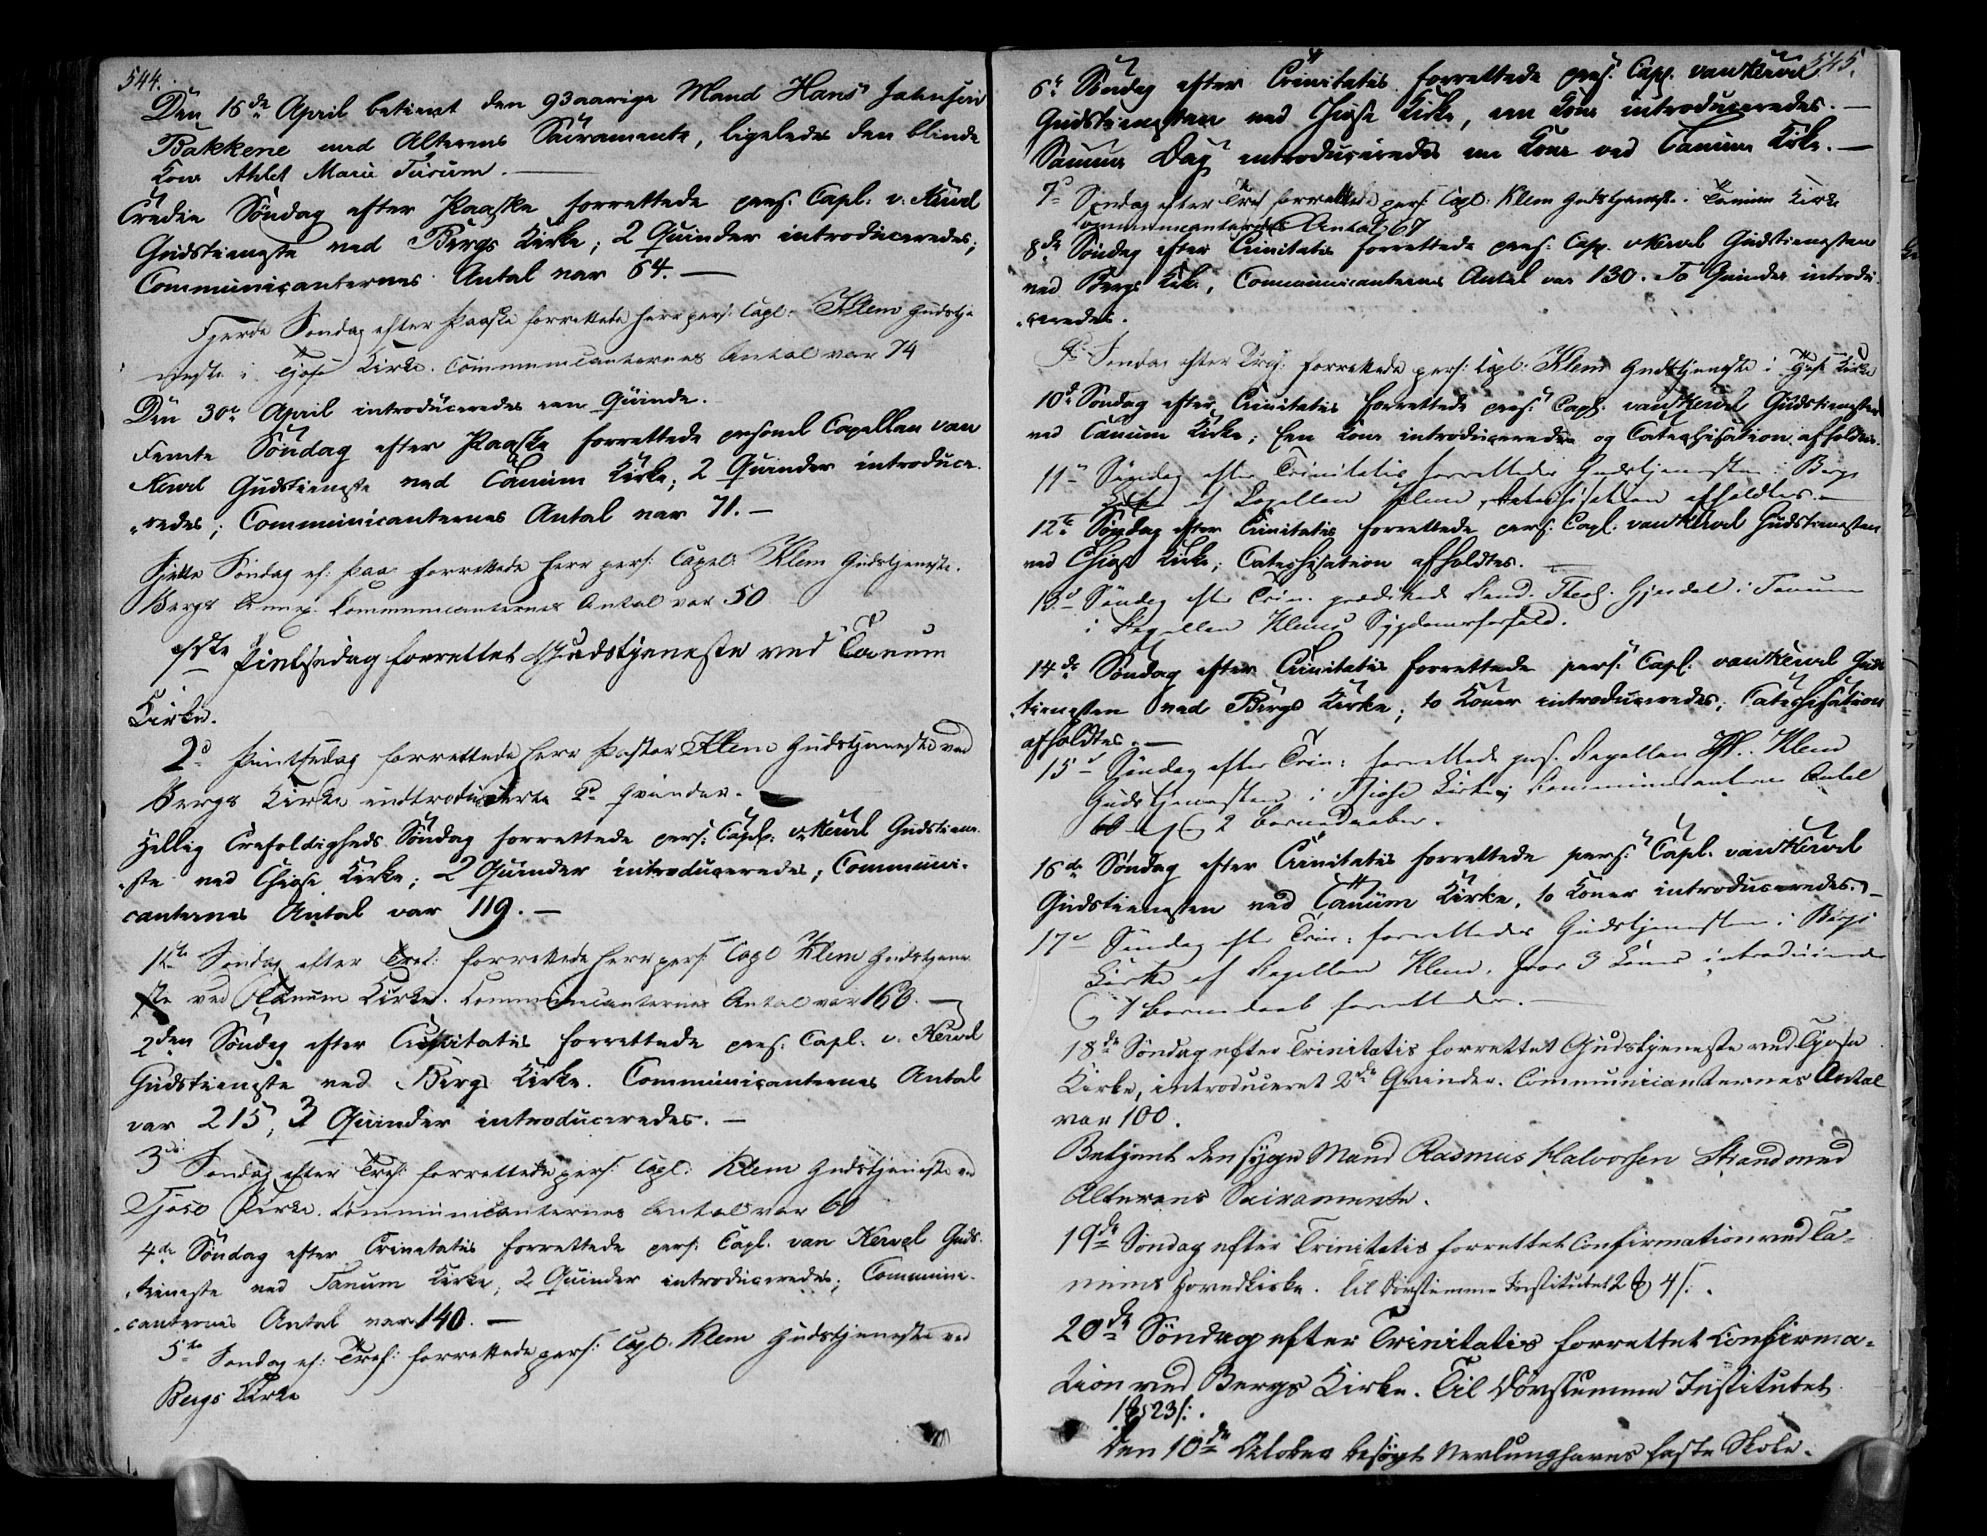 544.
Den 16de April betient den 93aarige Mand Hans Johnsen
Bakkene med Alterens Sacramente, ligeledes den blinde
Kone Ahlet Marie Furum. —
Tredie Søndag efter Paaske forrettede pers: Capl: v: Kervel
Gudstieneste ved Bergs Kirke; 2 Quinder introduceredes;
Communicanternes Antal var 64. —
Fjerde Søndag efter Paaske forrettede Herr pers: Capl: Klem Gudstje
neste i Tjose Kirke. Communicanternes Antal var 74
Den 30te April introduceredes een Quinde.
Femte Søndag efter Paaske forrettede personel Capellan van
Kervel Gudstieneste ved Tanum Kirke; 2 Quinder introduce-
redes; Communicanternes Antal var 71. —
Sjette Søndag ef: Paa: forrettede Herr pers: Capel: Klem Gudstjeneste.
Bergs Annex. Communicanternes Antal var 50
1ste Pintsedag forrettet Gudstjeneste ved Tanum
Kirke.
2d Pintsedag forrettede Herr Pastor Klem Gudstjeneste ved
Bergs Kirke indtroducerte 2 Qvinder.
Hellig Trefoldigheds Søndag forrettede pers: Capl: v: Kervel Gudstiene-
ste ved Thiose Kirke; 2 Quinder introduceredes; Communi-
canternes Antal var 119. —
1ste Søndag efter Tref: forrettede Herr pers: Capl Klem Gudstjene
ste ved Tanum Kirke. Communicanternes Antal var 160. —
2den Søndag efter Trinitatis forrettede pers: Capl. v. Kervel
Gudstieneste ved Bergs Kirke. Communicanternes Antal
var 215, 3 Quinder introduceredes. —
3die Søndag efter Tref: forrettede pers: Capl: Klem Gudstjeneste ved
Tjose Kirke. Communicanternes Antal var 60
4de Søndag efter Trinitatis forrettede pers: Capl. van Kervel Guds-
tieneste ved Tanum Kirke; 2 Quinder introduceredes; Communi-
canternes Antal var 140. —
5te Søndag ef: Tref: forrettede pers: Capl. Klem Gudstjeneste ved
Bergs Kirke
545.
6te Søndag efter Trinitatis forrettede pers: Cap. van Kervel
Gudstienesten ved Thiose Kirke, een Kone introduceredes. —
Samme Dag introduceredes een Kone ved Tanum Kirke. —
7de Søndag efter Tref forrettede pers: Capl: Klem Gudstjeneste i Tanum Kirke
Communicanternes Antal 67
8de Søndag efter Trinitatis forrettede pers: Cap. v Kervel Gudstienesten
ved Bergs Kirke, Communicanternes Antal var 130. To Quinder introdu-
ceredes.
9de Søndag efter Tref: forrettede pers: Capl: Klem Gudstjeneste i Tjose Kirke
10de Søndag efter Trinitatis forrettede pers: Capl. van Kervel Gudstienesten
ved Tanum Kirke; Een Kone introduceredes og Catechisation afholdtes.
11te Søndag efter Trinitatis forrettedes Gudstjenesten i Bergs
Kirke af Capellan Klem, Catechisation afholdtes. —
12te Søndag efter Trinitatis forrettede pers: Capl: van Kervel Gudstienesten
ved Thiose Kirke; Catechisation afholdtes. —
13de Søndag efter Trin. prædikede Cand. Theol. Gjerdal i Tanum
i Capellan Klems Sygdomsforfald.
14de Søndag efter Trinitatis forrettede pers: Capl: van Kervel Guds
tienesten ved Bergs Kirke; to Koner introduceredes; Catechisation
afholdtes. —
15de Søndag efter Trin: forrettede pers. Capellan Hr. Klem
Gudstjenesten i Thjose Kirke; Communicanternes Antal
60 og 2 Barnedaaber.
16de Søndag efter Trinitatis forrettede pers: Capl. van Kervel
Gudstienesten ved Tanum Kirke, to Koner introduceredes. —
17de Søndag efter Trin: forrettedes Gudstjenesten i Bergs
Kirke af Capellan Klem, hvor 3 Koner introduceredes
og 1 Barnedaab forrettedes. —
18de Søndag efter Trinitatis forrettet Gudstjeneste ved Tjose
Kirke, introduceret 2de Qvinder. Communicanternes Antal
var 100.
Betjent den syge Mand Rasmus Halvorsen Strand med
Alterens Sacramente.
19de Søndag efter Trinitatis forrettet Confirmation ved Ta-
nums Hovedkirke. Til Døvstumme Institutet 2 4 s.
20de Søndag efter Trinitatis forrettet Confirma-
tion ved Bergs Kirke. Til Døvstumme Institutet
1 23 s.
Den 10de October besøgt Nevlunghavns faste Skole.